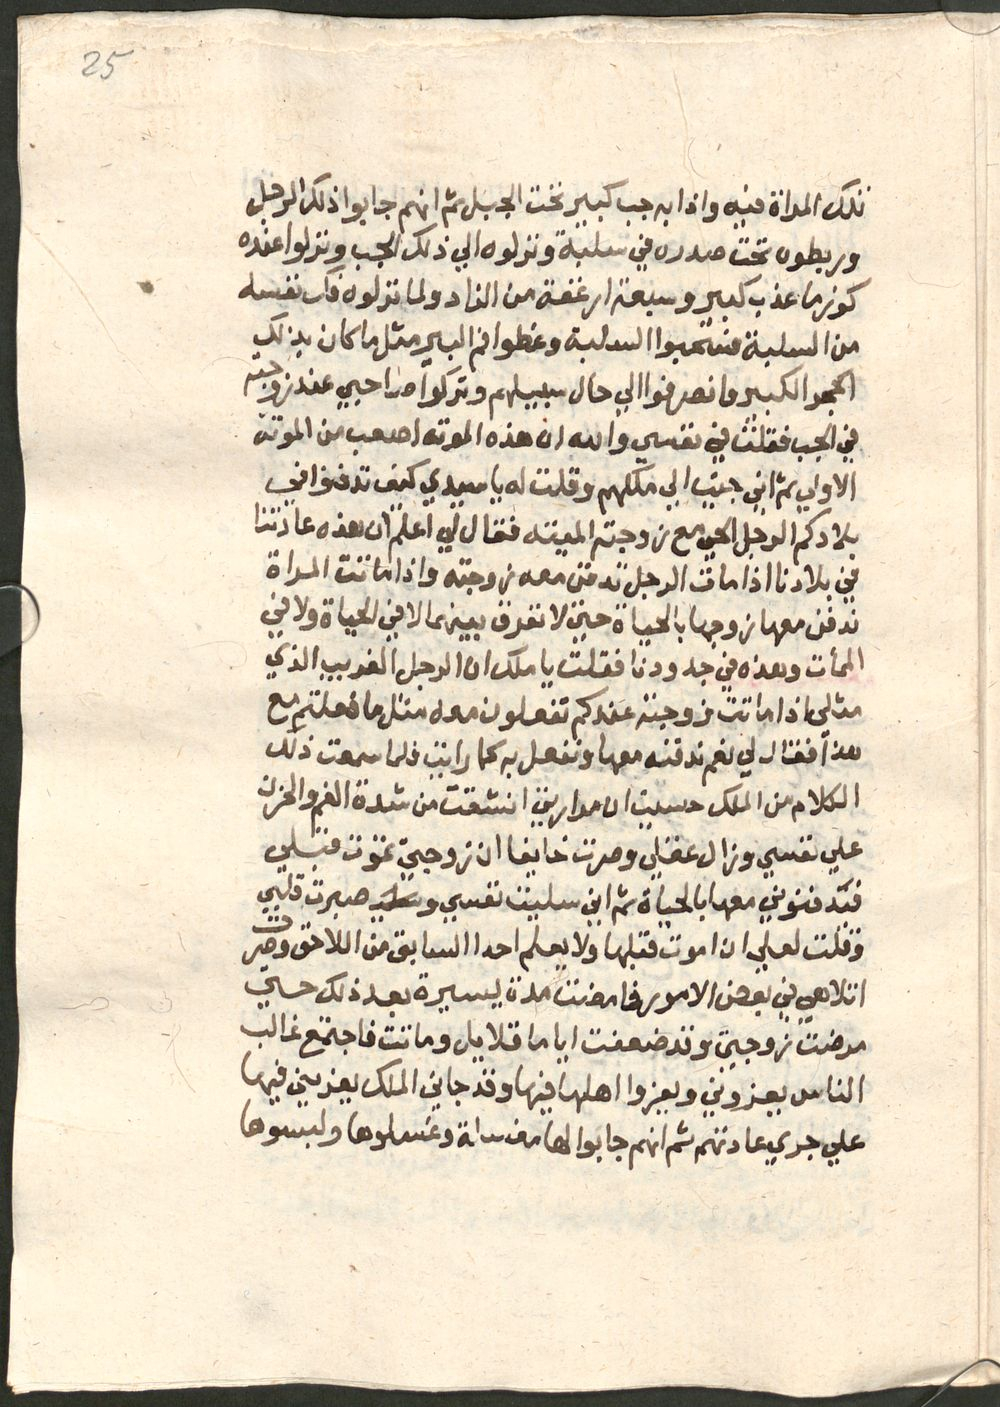 25
تلك المراة فيه واذا به جب كبير تحت الجبل ثم انهم جابوا ذلك الرجل
وربطوه تحت صدره في سلبة ونزلوه الي ذلك الجب ونزلوا عنده
كوز ما عذب كبير وسبعة ارغفة من الزاد ولما نزلوه فك نفسه
من السلبة فسحبوا السلبة وغطوا فم البير مثل ما كان بذلك
الحجر الكبير وانصرفوا الي حال سبيلهم وتركوا صاحبي عند زوجته
في الجب فقلت في نفسي والله ان هذه الموته اصعب من الموته
الاولي ثم اني جيت الي ملكهم وقلت له يا سيدي كيف تدفنوا في
بلادكم الرجل الحي مع زوجته الميته فقال لي اعلم ان هذه عادتنا
في بلادنا اذا مات الرجل ندفن معه زوجته واذا ماتت المراة
ندفن معها زوجها بالحياة حتي لا نفرق بينهما لا في الحياة ولا في
الممات وهذه في جدودنا فقلت يا ملك ان الرجل الغريب الذي
مثلي اذا ماتت زوجته عندكم تفعلون معه مثل ما فعلتم مع
هذا فقال لي نعم ندفنه معها ونفعل به كما رايت فلما سمعت ذلك
الكلام من الملك حسيت ان مرارتي انشقت من شدة الغم والحزن
علي نفسي وزال عقلي وصرت خايفا ان زوجتي تموت قبلي
فيدفنوني معها بالحياة ثم اني سليت نفسي وصبرت قلبي
وقلت لعلي ان اموت قبلها ولا يعلم احدا السابق من اللاحق وصرت
اتلاهي في بعض الامور فما مضت مدة يسيرة بعد ذلك حتي
مرضت زوجتي وقد ضعفت اياما قلايل وماتت فاجتمع غالب
الناس يعزوني ويعزوا اهلها فيها وقد جاني الملك يعزيني فيها
علي جري عادتهم ثم انهم جابوا لها مغسلة وغسلوها ولبسوها